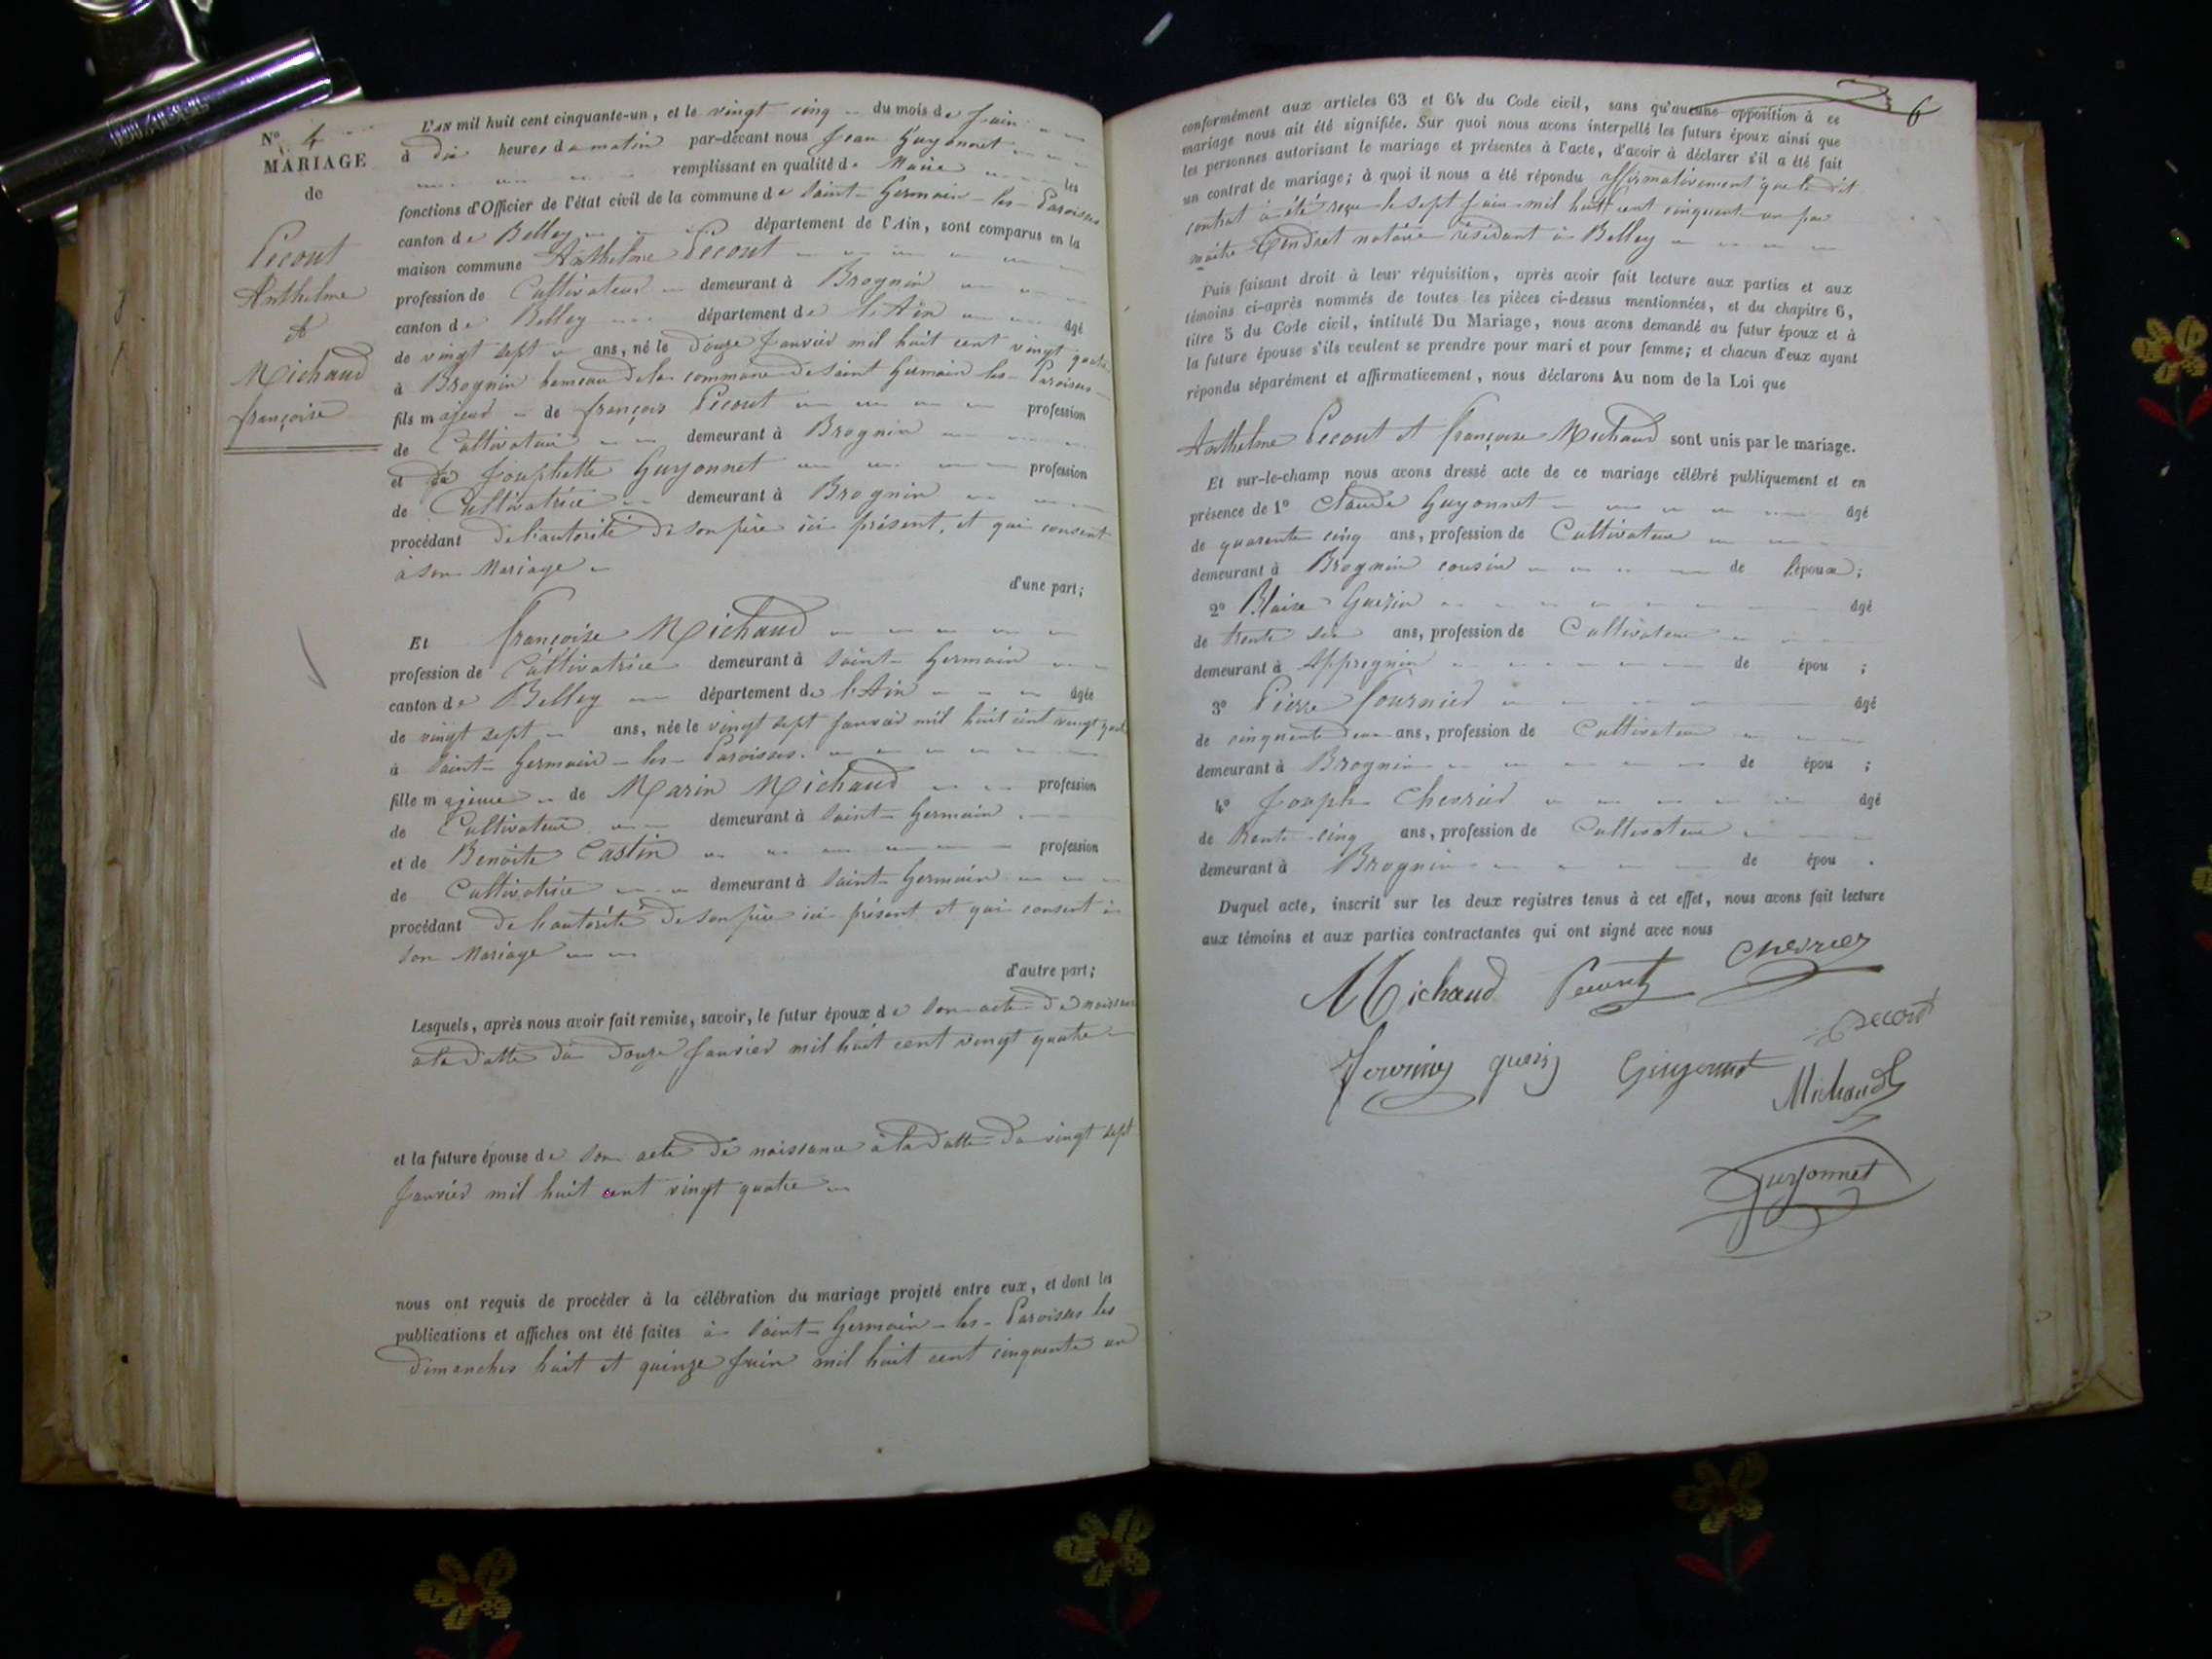 N° 4
MARIAGE
de
Pecout
Anthelme
et
Michaud
françoise
L'AN mil huit cent cinquante-un, et le vingt cinq du mois de Juin
à dix heures du matin par-devant nous Jean Guyonnet
remplissant en qualité de Maire les
fonctions d'Officier de l'état civil de la commune de Saint-Germain-les-Paroisses
canton de Belley département de l'Ain, sont comparus en la
maison commune Anthelme Pecout
profession de Cultivateur demeurant à Brognin
canton de Belley département de l'Ain âgé
de vingt sept ans, né le Douze Janvier mil huit cent vingt quatre
à Brognin hameau de la commune de Saint Germain les Paroisses
fils majeur de françois Pecout profession
de Cultivateur demeurant à Brognin
et de Josephette Guyonnet profession
de Cultivatrice demeurant à Brognin
procédant de l'autorité de son père ici présent, et qui consent
à son Mariage
d'une part;
Et françoise Michaud
profession de Cultivatrice demeurant à Saint-Germain
canton de Belley département de l'Ain âgée
de vingt sept ans, née le vingt sept Janvier mil huit cent vingt quatre
à Saint-Germain-les-Paroisses.
fille majeure de Marin Michaud profession
de Cultivateur demeurant à Saint-Germain
et de Benoite Castin profession
de Cultivatrice demeurant à Saint-Germain
procédant de l'autorité de son père ici présent et qui consent à
son Mariage
d'autre part;
Lesquels, après nous avoir fait remise, savoir, le futur époux de son acte de naissance
à la datte du Douze Janvier mil huit cent vingt quatre
et la future épouse de son acte de naissance à la datte du vingt sept
Janvier mil huit cent vingt quatre
nous ont requis de procéder à la célébration du mariage projeté entre eux, et dont les
publications et affiches ont été faites à Saint-Germain-les-Paroisses les
dimanches huit et quinze Juin mil huit cent cinquante un
6
conformément aux articles 63 et 64 du Code civil, sans qu'aucune opposition à ce
mariage nous ait été signifiée. Sur quoi nous avons interpellé les futurs époux ainsi que
les personnes autorisant le mariage et présentes à l'acte, d'avoir à déclarer s'il a été fait
un contrat de mariage; à quoi il nous a été répondu affirmativement que le dit
contrat à été reçu le sept Juin mil huit cent cinquante un par
maitre Tendret notaire résidant à Belley
Puis faisant droit à leur réquisition, après avoir fait lecture aux parties et aux
témoins ci-après nommés de toutes les pièces ci-dessus mentionnées, et du chapitre 6,
titre 5 du Code civil, intitulé Du Mariage, nous avons demandé au futur époux et à
la future épouse s'ils veulent se prendre pour mari et pour femme; et chacun d'eux ayant
répondu séparément et affirmativement, nous déclarons Au nom de la Loi que
Anthelme Pecout et françoise Michaud sont unis par le mariage.
Et sur-le-champ nous avons dressé acte de ce mariage célébré publiquement et en
présence de 1° Claude Guyonnet âgé
de quarente cinq ans, profession de Cultivateur
demeurant à Brognin cousin de l'époux;
2° Blaise Guerin âgé
de trente six ans, profession de Cultivateur
demeurant à Appregnin de épou ;
3° Pierre Fournier âgé
de cinquente deux ans, profession de Cultivateur
demeurant à Brognin de épou ;
4° Joseph Chevrier âgé
de trente cinq ans, profession de Cultivateur
demeurant à Brognin de épou .
Duquel acte, inscrit sur les deux registres tenus à cet effet, nous avons fait lecture
aux témoins et aux parties contractantes qui ont signé avec nous
Michaud Pecout Chevrier
Pecout
guerin Guyonnet
Michaud
Guyonnet